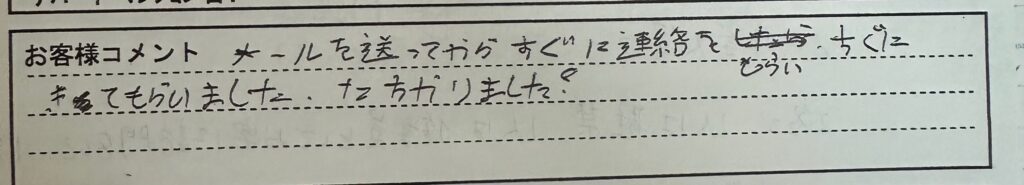 お客様コメント メールを送ってからすぐに連絡をもらい、すぐに
来てもらいました。たすかりました。